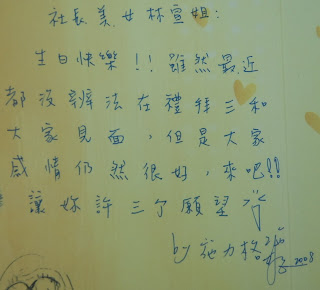 社長美女林宣姐:
生日快樂!!雖然最近
都沒辦法在禮拜三和
大家見面,但是大家
感情仍然很好,來吧!!
讓妳許三個願望
by 施力格
2008